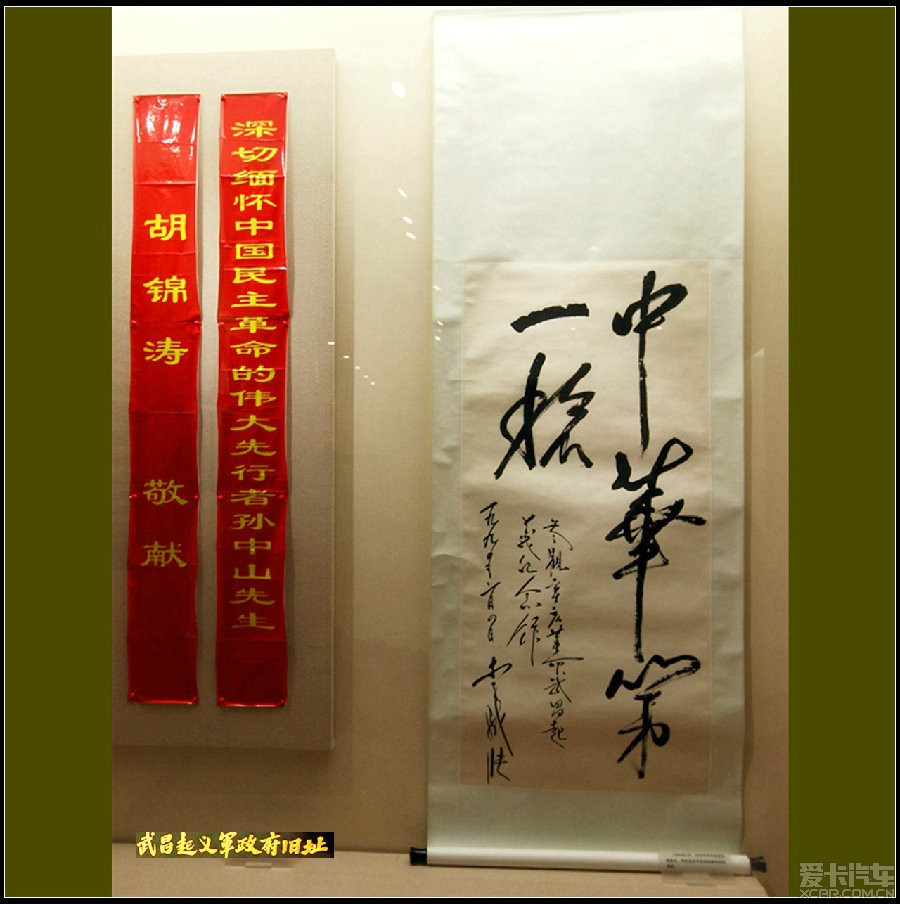 深切缅怀中国民主革命的伟大先行者孙中山先生
胡锦涛 敬献
中華第
一槍
参觀辛亥革命武昌起
義纪念作
武昌起义军政府旧址
爱卡汽车
XCAR.COM.CN